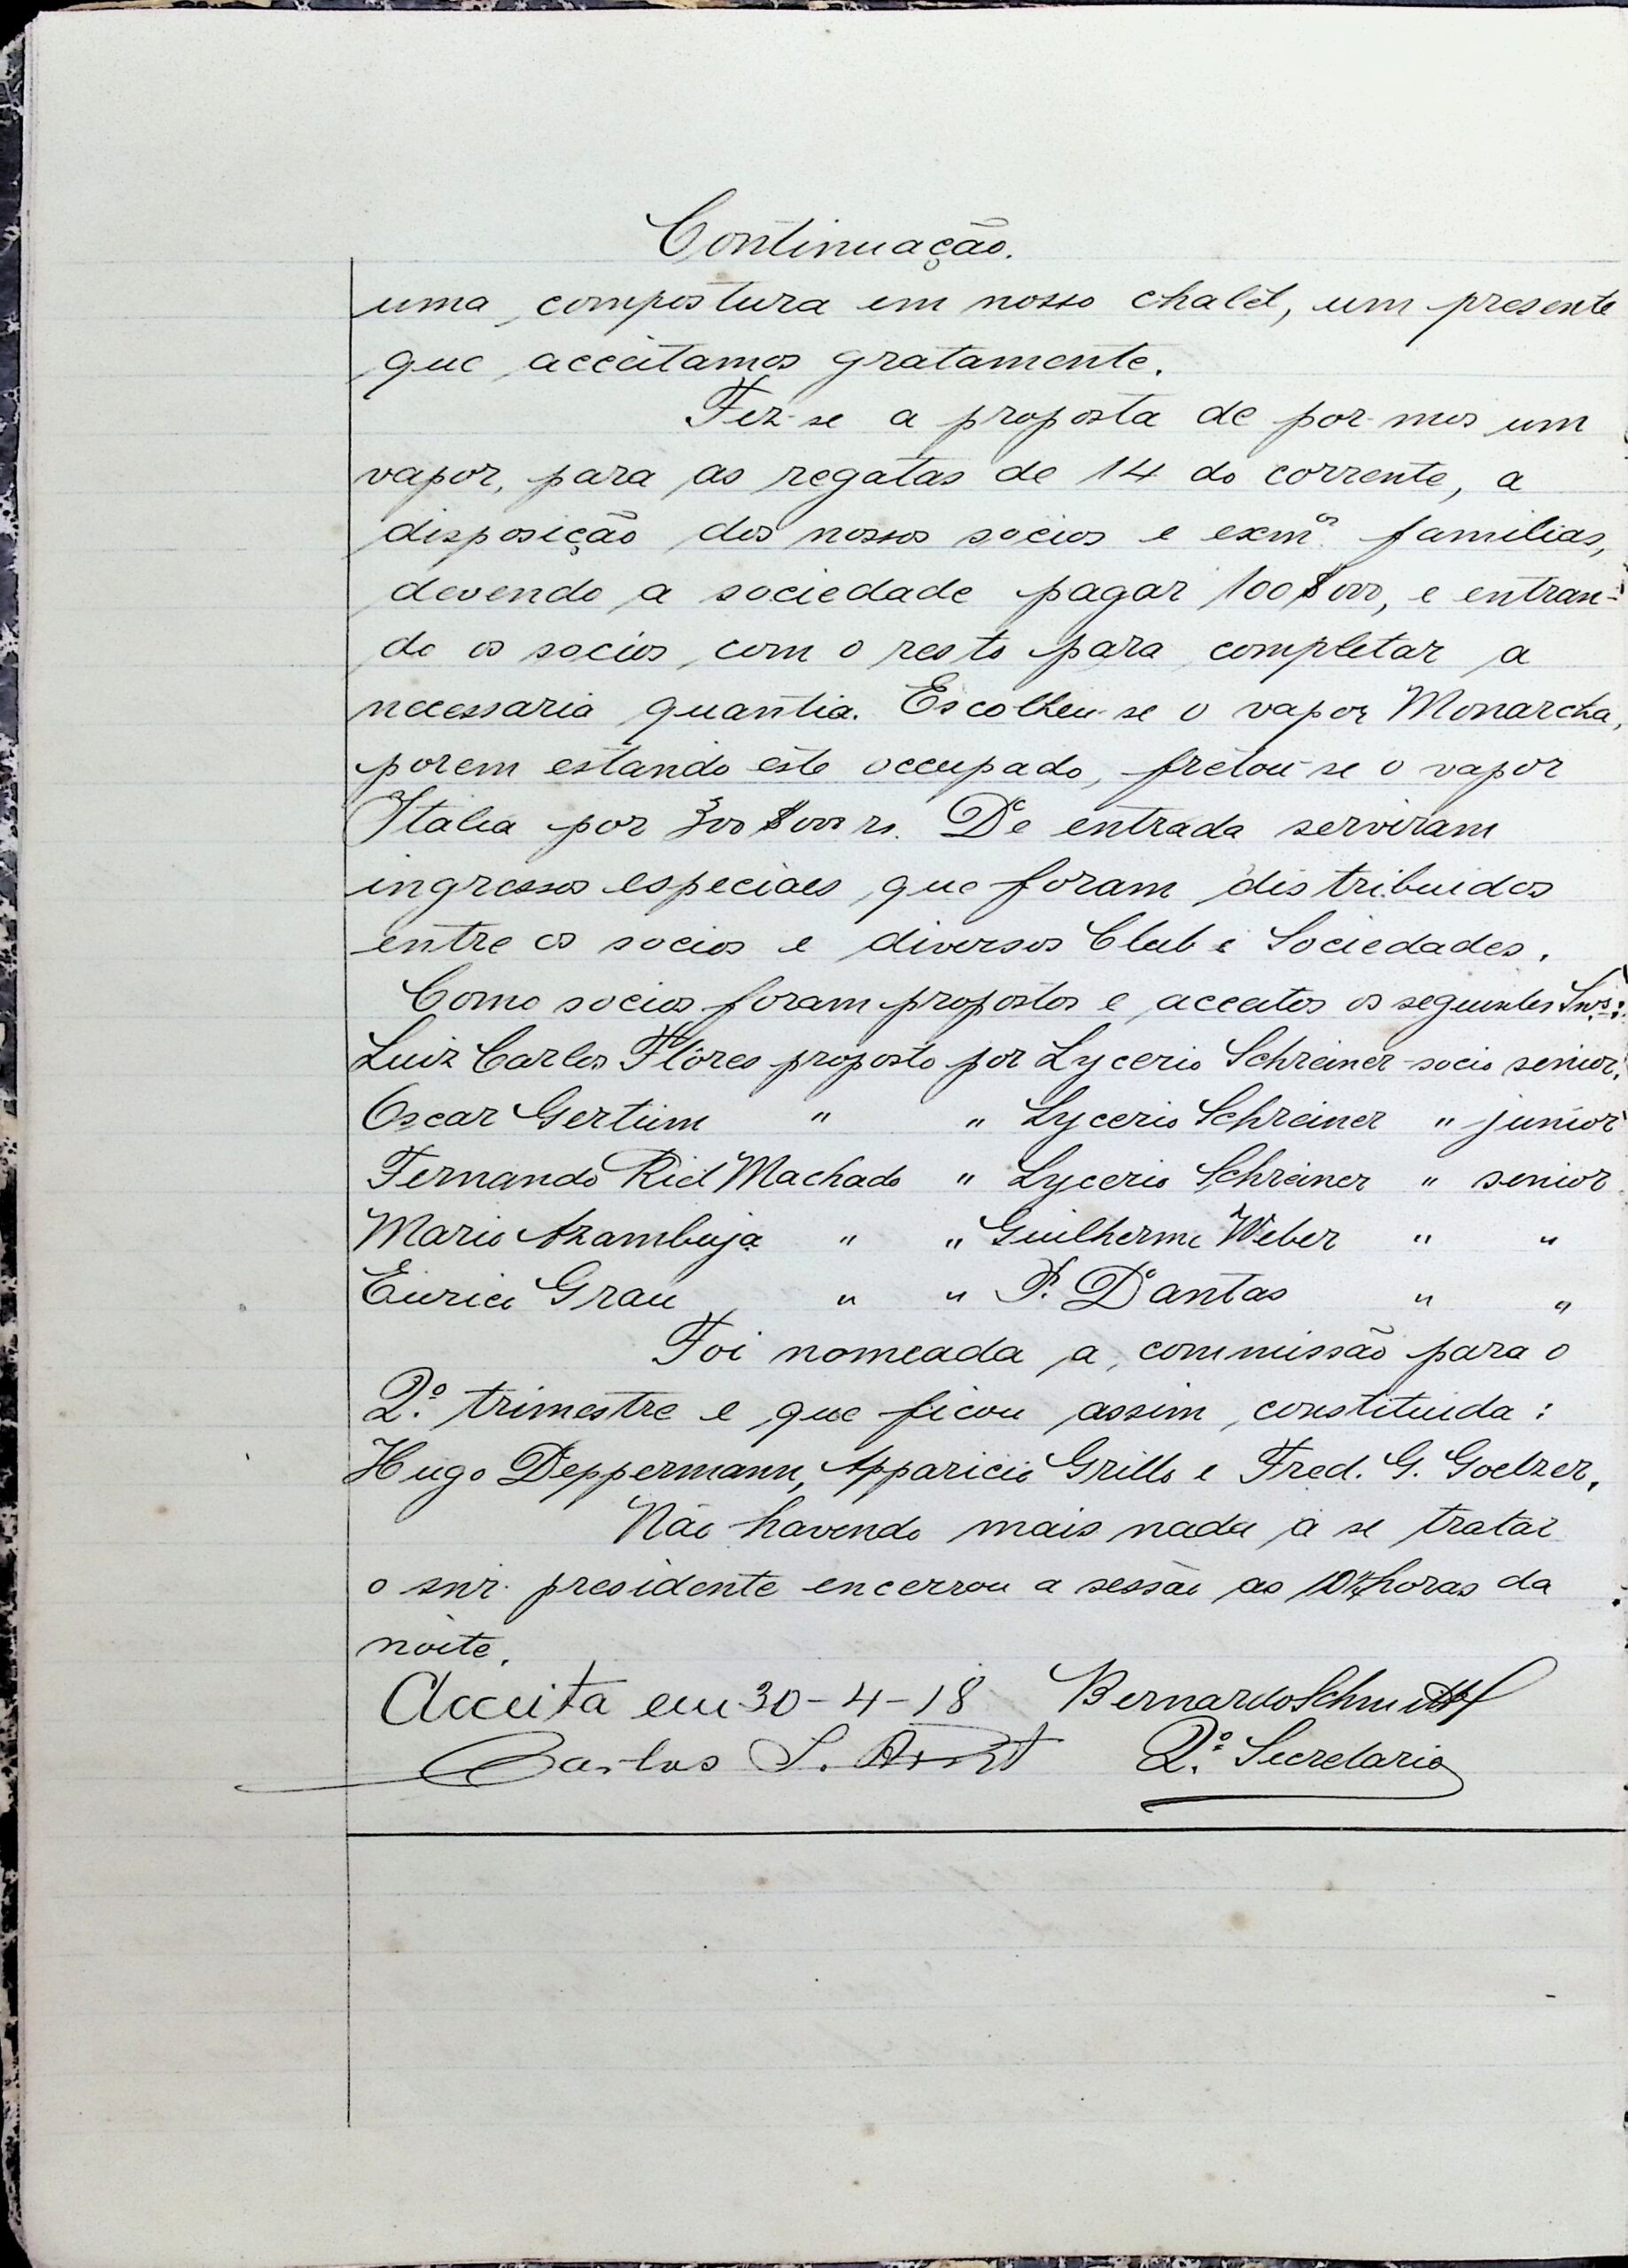 Continuação.
uma compostura em nosso chalét, um presente
que acceitamos gratamente.
Fez-se a proposta de por-mos um
vapor, para as regatas de 14 do corrente, a
disposição dos nossos socios e exmas familias,
devendo a sociedade pagar 100$000, e entran-
do os socios com o resto para completar a
necessaria quantia. Escolheu-se o vapor Monarcha,
porem estando este occupado, fretou-se o vapor
Italia por 300$000 rs. De entrada serviram
ingressos especiaes que foram distribuidos
entre os socios e diversos Club e Sociedades.
Como socios foram propostos e acceitos os seguintes Snrs:
Luiz Carlos Flôres proposto por Lycerio Schreiner - socio senior.
Oscar Gertum " " Lycerio Schreiner " junior
Fernando Riel Machado " Lycerio Schreiner " senior
Mario Azambuja " " Guilherme Weber " "
Eurico Grau " " P. Dantas " "
Foi nomeada a commissão para o
2º trimestre e que ficou assim constituida:
Hugo Deppermann, Apparicio Grillo e Fred. G. Goelzer.
Não havendo mais nada a se tratar
o snr. presidente encerrou a sessão as horas da
noite.
Acceita em 30-4-18 Bernardo Schmitt
Carlos S. Arnt 2º Secretario